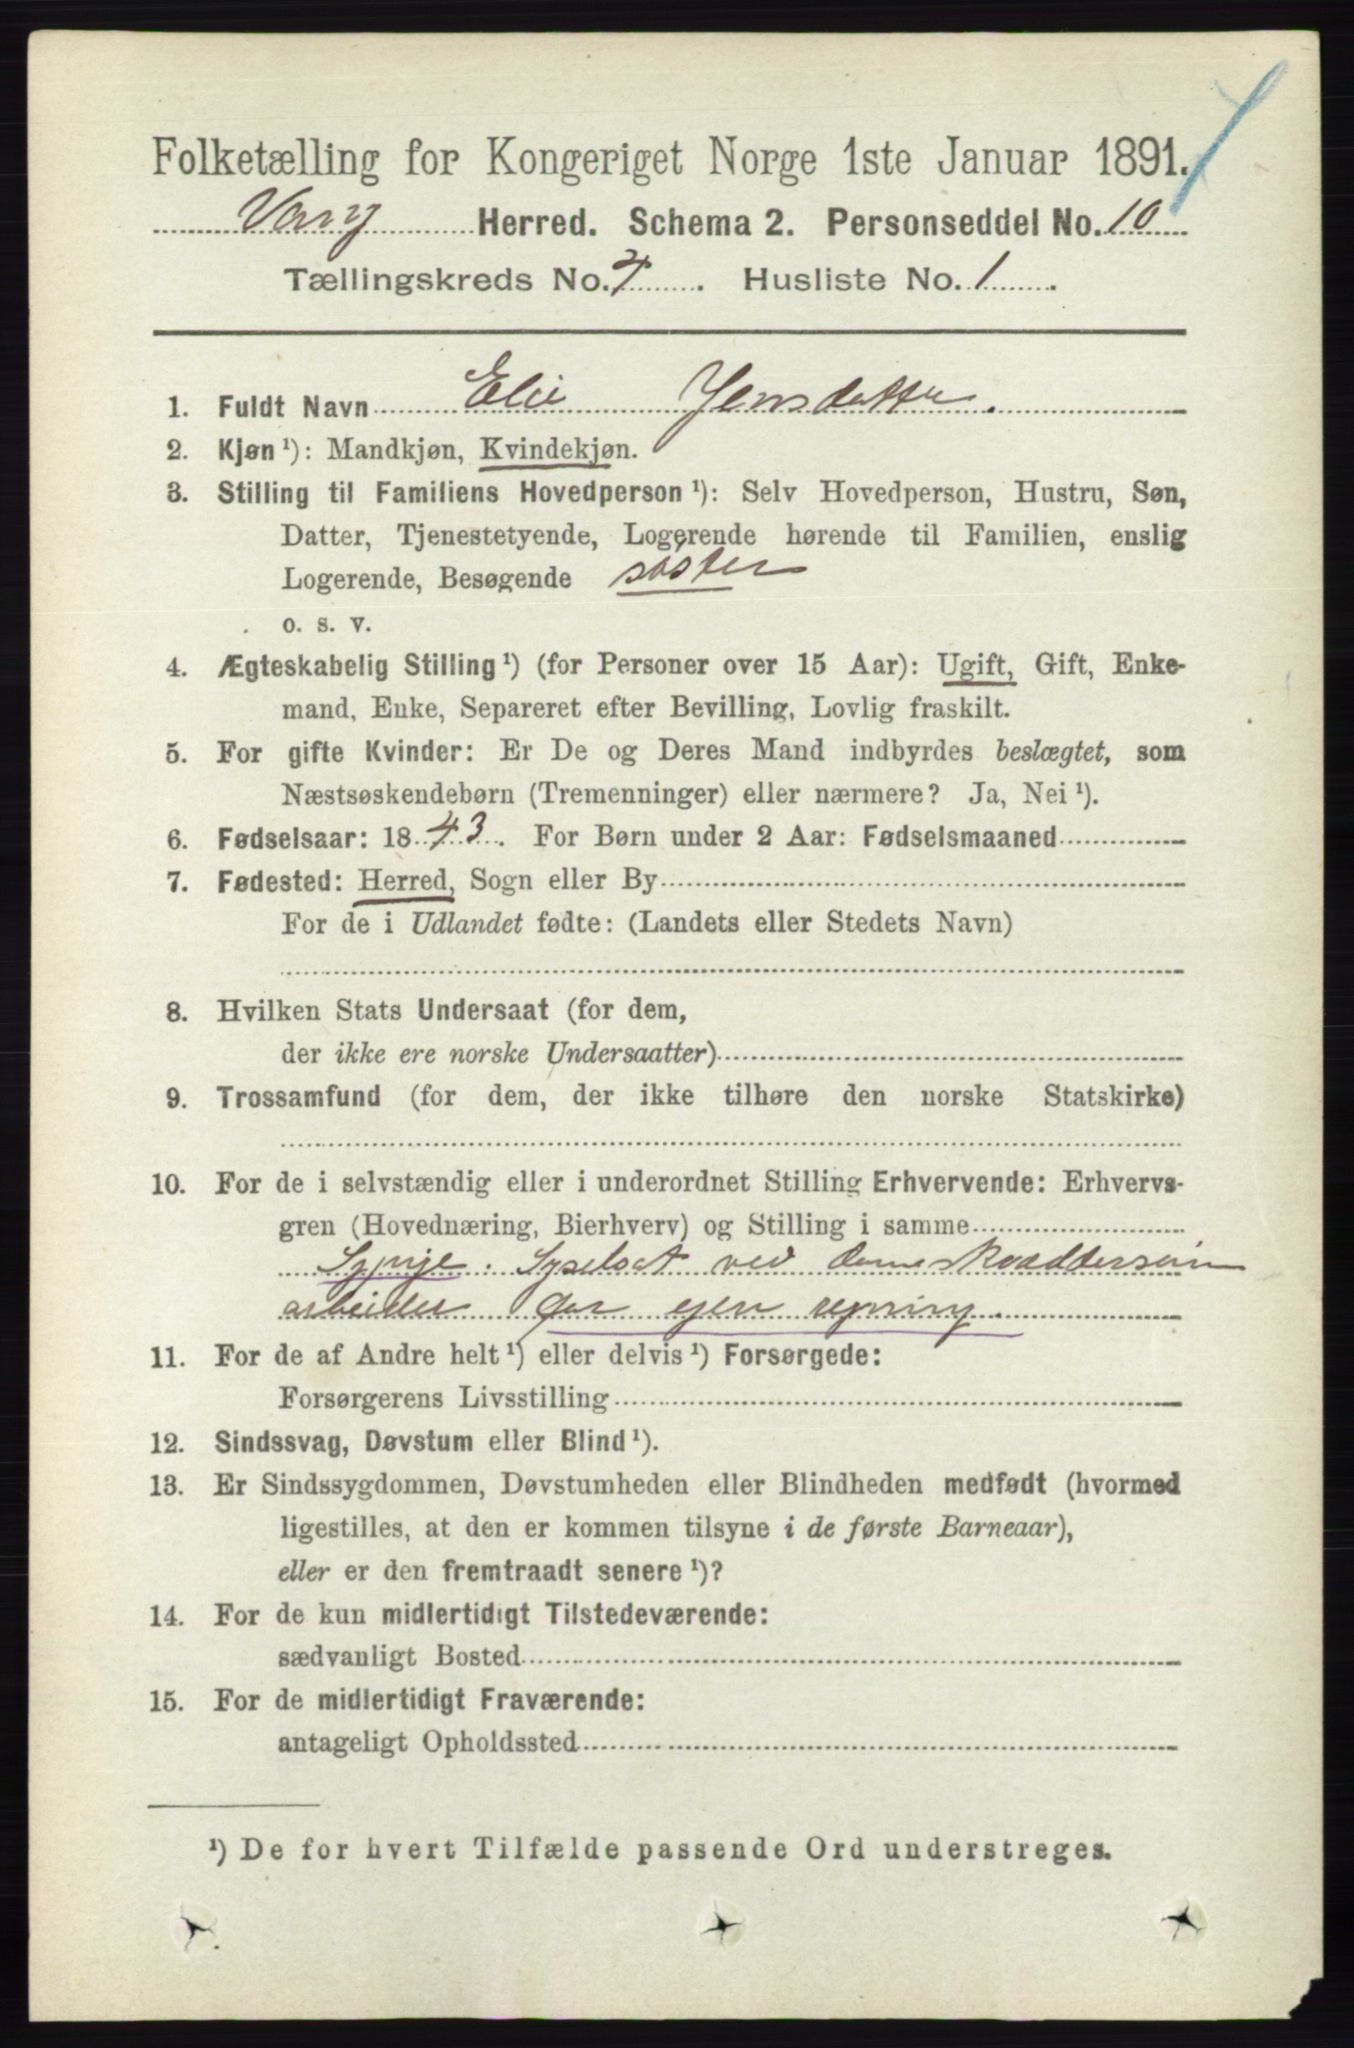 Folketælling for Kongeriget Norge 1ste Januar 1891.
Vang Herred. Schema 2. Personseddel No. 10
Tællingskreds No. 4. Husliste No. 1.
1. Fuldt Navn Elie Jensdatter.
2. Kjøn ¹): Mandkjøn, Kvindekjøn.
3. Stilling til Familiens Hovedperson ¹): Selv Hovedperson, Hustru, Søn,
Datter, Tjenestetyende, Logerende hørende til Familien, enslig
Logerende, Besøgende søster
o. s. v.
4. Ægteskabelig Stilling ¹) (for Personer over 15 Aar): Ugift, Gift, Enke-
mand, Enke, Separeret efter Bevilling, Lovlig fraskilt.
5. For gifte Kvinder: Er De og Deres Mand indbyrdes beslægtet, som
Næstsøskendebørn (Tremenninger) eller nærmere? Ja, Nei ¹).
6. Fødselsaar: 1843. For Børn under 2 Aar: Fødselsmaaned
7. Fødested: Herred, Sogn eller By
For de i Udlandet fødte: (Landets eller Stedets Navn)
8. Hvilken Stats Undersaat (for dem,
der ikke ere norske Undersaatter)
9. Trossamfund (for dem, der ikke tilhøre den norske Statskirke)
10. For de i selvstændig eller i underordnet Stilling Erhvervende: Erhvervs-
gren (Hovednæring, Bierhverv) og Stilling i samme
Sypige. Syselsat ved
arbeider for egen regning.
11. For de af Andre helt ¹) eller delvis ¹) Forsørgede:
Forsørgerens Livsstilling
12. Sindssvag, Døvstum eller Blind ¹).
13. Er Sindssygdommen, Døvstumheden eller Blindheden medfødt (hvormed
ligestilles, at den er kommen tilsyne i de første Barneaar),
eller er den fremtraadt senere ¹)?
14. For de kun midlertidigt Tilstedeværende:
sædvanligt Bosted
15. For de midlertidigt Fraværende:
antageligt Opholdssted
¹) De for hvert Tilfælde passende Ord understreges.